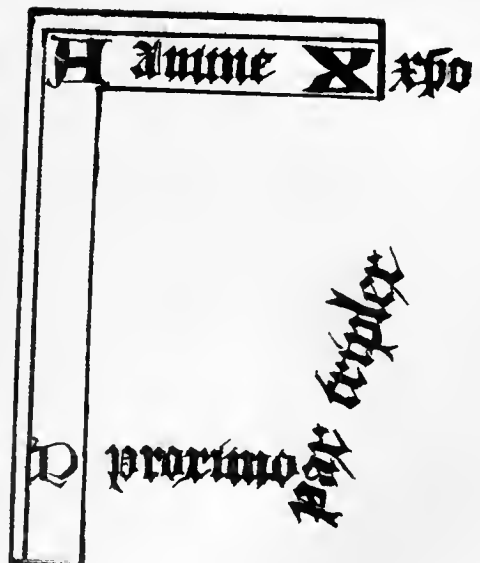 A Anime X xpo
P proximo
pax triplex